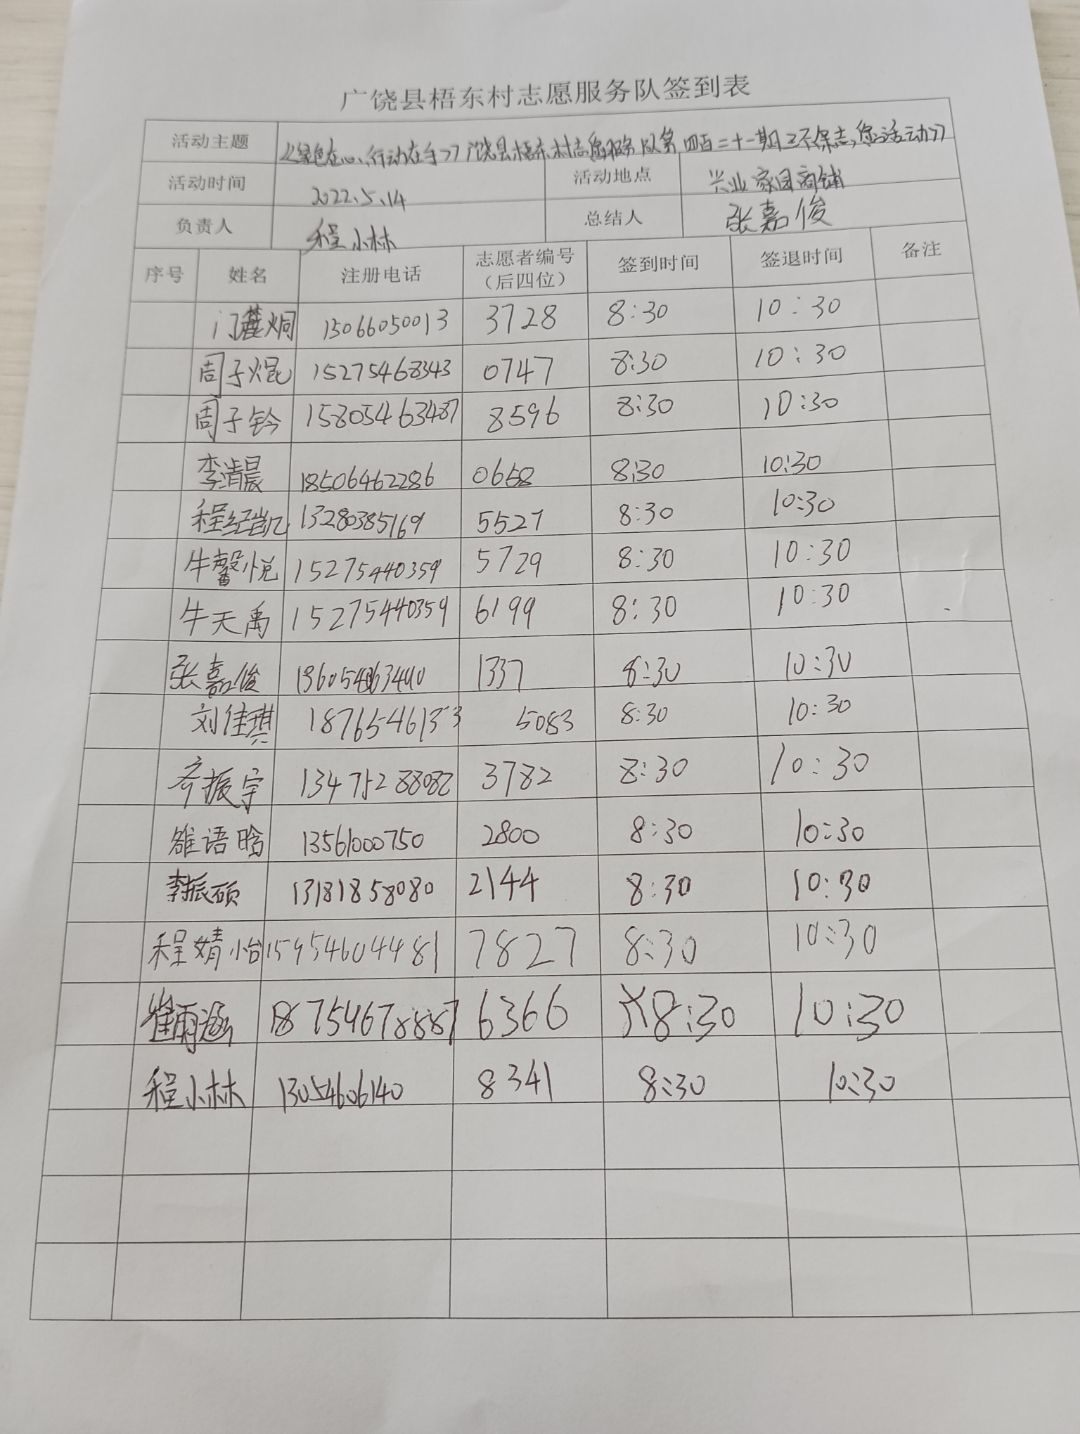 广饶县梧东村志愿服务队签到表
活动主题 《绿色在心、行动在手》广饶县梧东村志愿服务队第四百二十一期卫环保志愿活动》
活动时间 2022.5.14 活动地点 兴业家园商铺
负责人 程小林 总结人 张嘉俊
序号 姓名 注册电话 志愿者编号（后四位） 签到时间 签退时间 备注
门麓炯 15066050013 3728 8:30 10:30
周子焜 15275468343 0747 8:30 10:30
周子钤 15805463487 8596 8:30 10:30
李清晨 18506462286 0658 8:30 10:30
程经凯 13280385769 5527 8:30 10:30
牛馨悦 15275440359 5729 8:30 10:30
牛天禹 15275440359 6199 8:30 10:30
张嘉俊 1337 8:30 10:30
刘佳琪 18765461353 5083 8:30 10:30
齐振宇 13475288082 3782 8:30 10:30
雒语晗 13561000750 2800 8:30 10:30
李振硕 13181858080 2144 8:30 10:30
程婧怡 15954604481 7827 8:30 10:30
崔雨涵 18754678887 6366 8:30 10:30
程小林 13054606140 8341 8:30 10:30